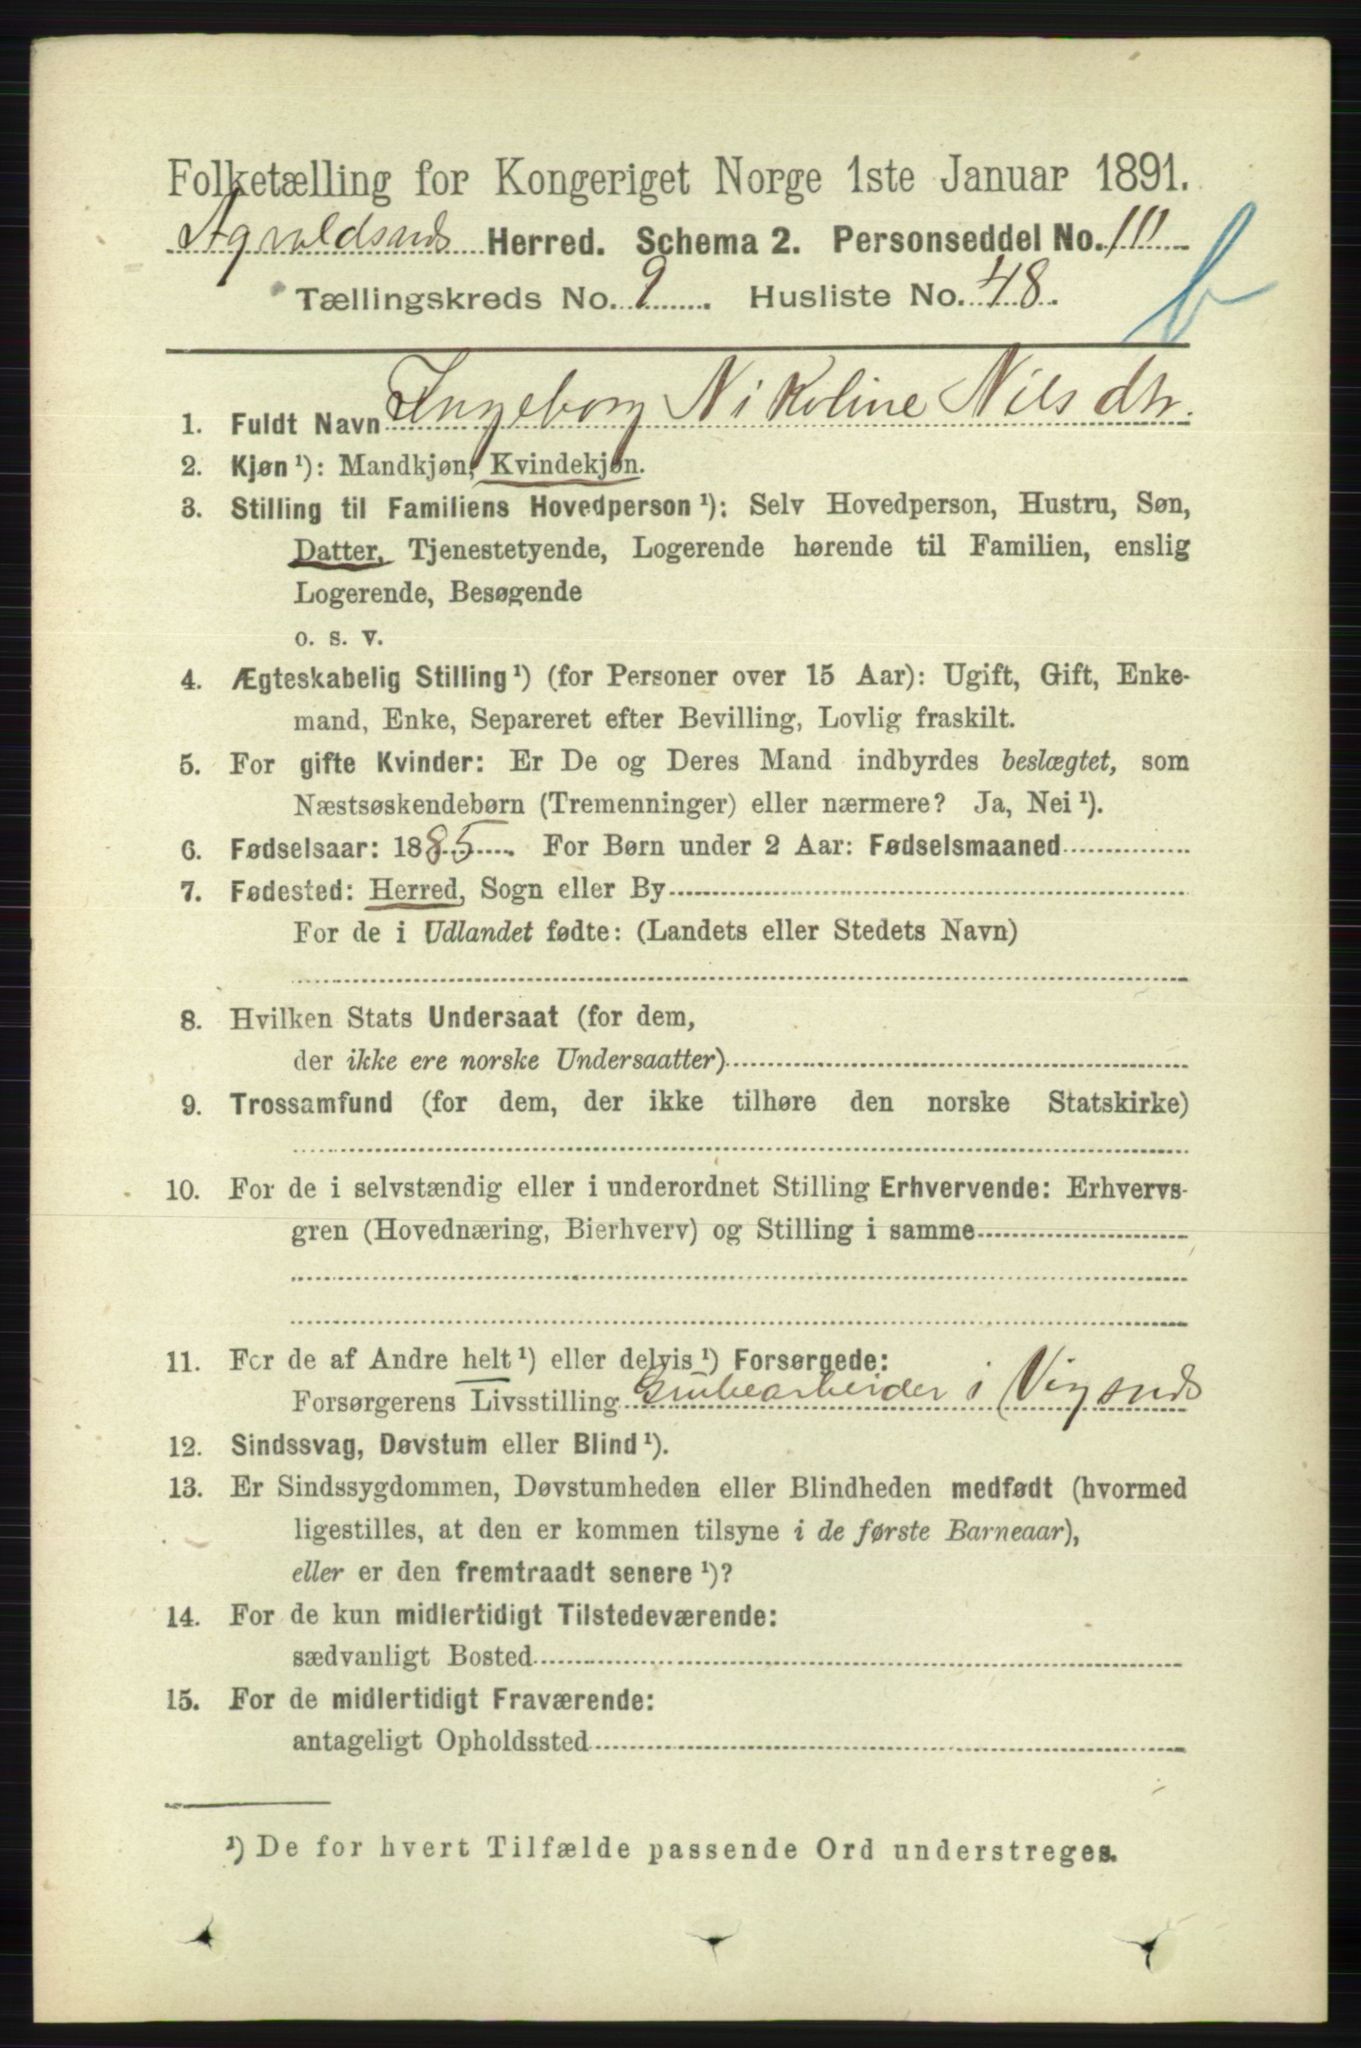 Folketælling for Kongeriget Norge 1ste Januar 1891.
Agvaldsnds Herred. Schema 2. Personseddel No. 111
b
Tællingskreds No. 9. Husliste No. 48.
1. Fuldt Navn Ingeborg Nikoline Nilsdtr.
2. Kjøn ¹): Mandkjøn, Kvindekjøn.
3. Stilling til Familiens Hovedperson ¹): Selv Hovedperson, Hustru, Søn,
Datter, Tjenestetyende, Logerende hørende til Familien, enslig
Logerende, Besøgende
o. s. v.
4. Ægteskabelig Stilling ¹) (for Personer over 15 Aar): Ugift, Gift, Enke-
mand, Enke, Separeret efter Bevilling, Lovlig fraskilt.
5. For gifte Kvinder: Er De og Deres Mand indbyrdes beslægtet, som
Næstsøskendebørn (Tremenninger) eller nærmere? Ja, Nei ¹).
6. Fødselsaar: 1885. For Børn under 2 Aar: Fødselsmaaned
7. Fødested: Herred, Sogn eller By
For de i Udlandet fødte: (Landets eller Stedets Navn)
8. Hvilken Stats Undersaat (for dem,
der ikke ere norske Undersaatter)
9. Trossamfund (for dem, der ikke tilhøre den norske Statskirke)
10. For de i selvstændig eller i underordnet Stilling Erhvervende: Erhvervs-
gren (Hovednæring, Bierhverv) og Stilling i samme
11. For de af Andre helt ¹) eller delvis ¹) Forsørgede:
Forsørgerens Livsstilling Grubearbeider i Vigsnds
12. Sindssvag, Døvstum eller Blind ¹).
13. Er Sindssygdommen, Døvstumheden eller Blindheden medfødt (hvormed
ligestilles, at den er kommen tilsyne i de første Barneaar),
eller er den fremtraadt senere ¹)?
14. For de kun midlertidigt Tilstedeværende:
sædvanligt Bosted
15. For de midlertidigt Fraværende:
antageligt Opholdssted
¹) De for hvert Tilfælde passende Ord understreges.